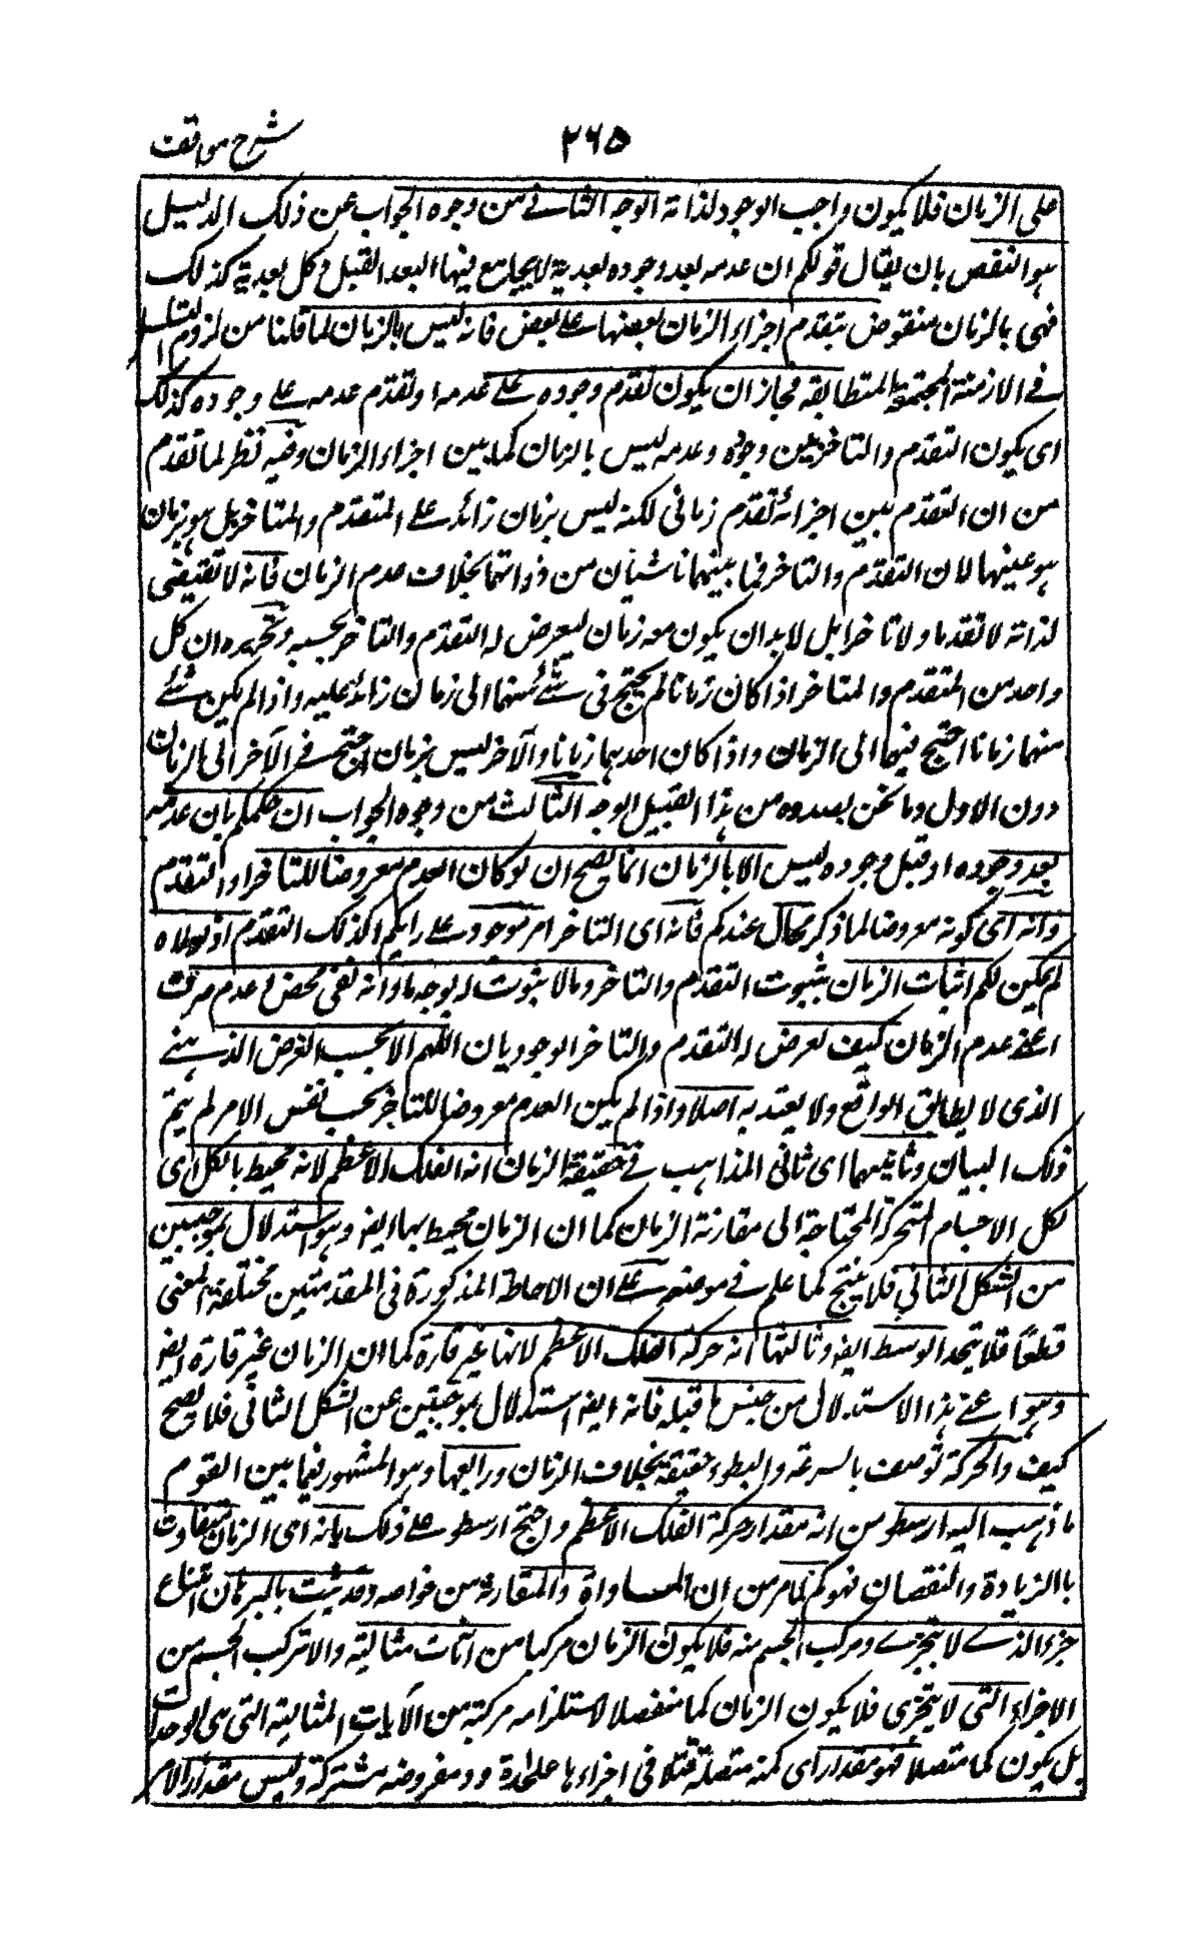 شرح مواقف
۲۶۵
على الزمان فلا يكون واجب الوجود لذاته الوجه الثانے من وجوه الجواب عن ذلك الدليل
ہو النقض بان يقال قولكم ان عدمه بعد وجوده بعدية لا يجامع فيها البعد القبل و كل بعدية كذلك
فہى بالزمان منقوض بتقدم اجزاء الزمان بعضها علے بعض فانه ليس بالزمان لما قلنا من لزوم التسلسل
فے الازمنة المجتمعة المتطابقه فجاز ان يكون تقدم وجوده علے عدمه او تقدم عدمه علے وجوده كذلك
اى يكون التقدم والتاخر بين وجوده وعدمه ليس بالزمان كما بين اجزاء الزمان وفيه نظر لما تقدم
من ان التقدم بين اجزائه تقدم زمانى لكنه ليس بزمان زائد علے المتقدم والمتاخر بل ہو بزمان
ہو عينهما لان التقدم والتاخر فيما بينهما ناشيان من ذواتهما بخلاف عدم الزمان فانه لا تقتضى
لذاته لا تقدما ولا تاخرا بل لا بد ان يكون معه زمان ليعرض له التقدم والتاخر بحسبه وتحريره ان كل
واحد من المتقدم والمتاخر اذا كان زمانا لم يحتج فى شئے منهما الى زمان زائد عليه واذا لم يكن شئے
منهما زمانا احتيج فيهما الى الزمان واذا كان احدهما زمانا والآخر ليس بزمان احتيج فے الآخر الى الزمان
دون الاول وما نحن بصدده من ہذا القبيل الوجه الثالث من وجوه الجواب ان حكمكم بان عدمه
بعد وجوده او قبل وجوده ليس الا بالزمان انما يصح ان لو كان العدم معروضا للتاخر او التقدم
وانه اى كونه معروضا لما ذكر محال عندكم فانه اى التاخر امر موجود علے رايكم وكذلك التقدم اذ لولاه
لم يكن لكم اثبات الزمان بثبوت التقدم والتاخر وما لا ثبوت له بوجه ما وانه نفى محض و عدم صرف
اعنے عدم الزمان كيف يعرض له التقدم والتاخر الوجوديان اللهم الا بحسب الفرض الذہنے
الذى لا يطابق الواقع ولا يعتد به اصلا واذا لم يكن العدم معروضا للتاخر بحسب نفس الامر لم يتم
ذلك البيان وثانيهما اى ثانى المذاہب فے حقيقة الزمان انه الفلك الاعظم لانه محيط بالكل اى
لكل الاجسام المتحركة المحتاجة الى مقارنة الزمان كما ان الزمان محيط بها ايضا وہو استدلال بموجبتين
من الشكل الثانى فلا ينتج كما علم فے موضعه علے ان الاحاطة المذكورة فى المقدمتين مختلفة المعنى
قطعا فلا يتحد الوسط ايضا وثالثها انه حركة الفلك الاعظم لانها غير قارة كما ان الزمان غير قارة ايضا
وہو اعنے ہذا الاستدلال من جنس ما قبله فانه ايضا استدلال بموجبتين عن الشكل الثانى فلا يصح
كيف والحركة توصف بالسرعة والبطوء حقيقة بخلاف الزمان ورابعها وہو المشهور فيما بين القوم
ما ذہب اليه ارسطو من انه مقدار حركة الفلك الاعظم واحتج ارسطو علے ذلك بانه اى الزمان متفاوت
باالزيادة والنقصان فهو كم لما مر من ان المساواة والمفارقة من خواصه وقد ثبت بالبرہان امتناع
جزء الذے لا يتجزے ومركب الجسم منه فلا يكون الزمان مركبا من آنات متتالية والا تركب الجسم من
الاجزاء التى لا يتجزى فلا يكون الزمان كما منفصلا لاستلزامه مركبة من الآنات المتتالية التى ہى الوحدات
بل يكون كما متصلا فهو مقدار اى كمية متصلة تتلاقى اجزاءہا على حدود مفروضة مشتركة وليس مقدار الامر